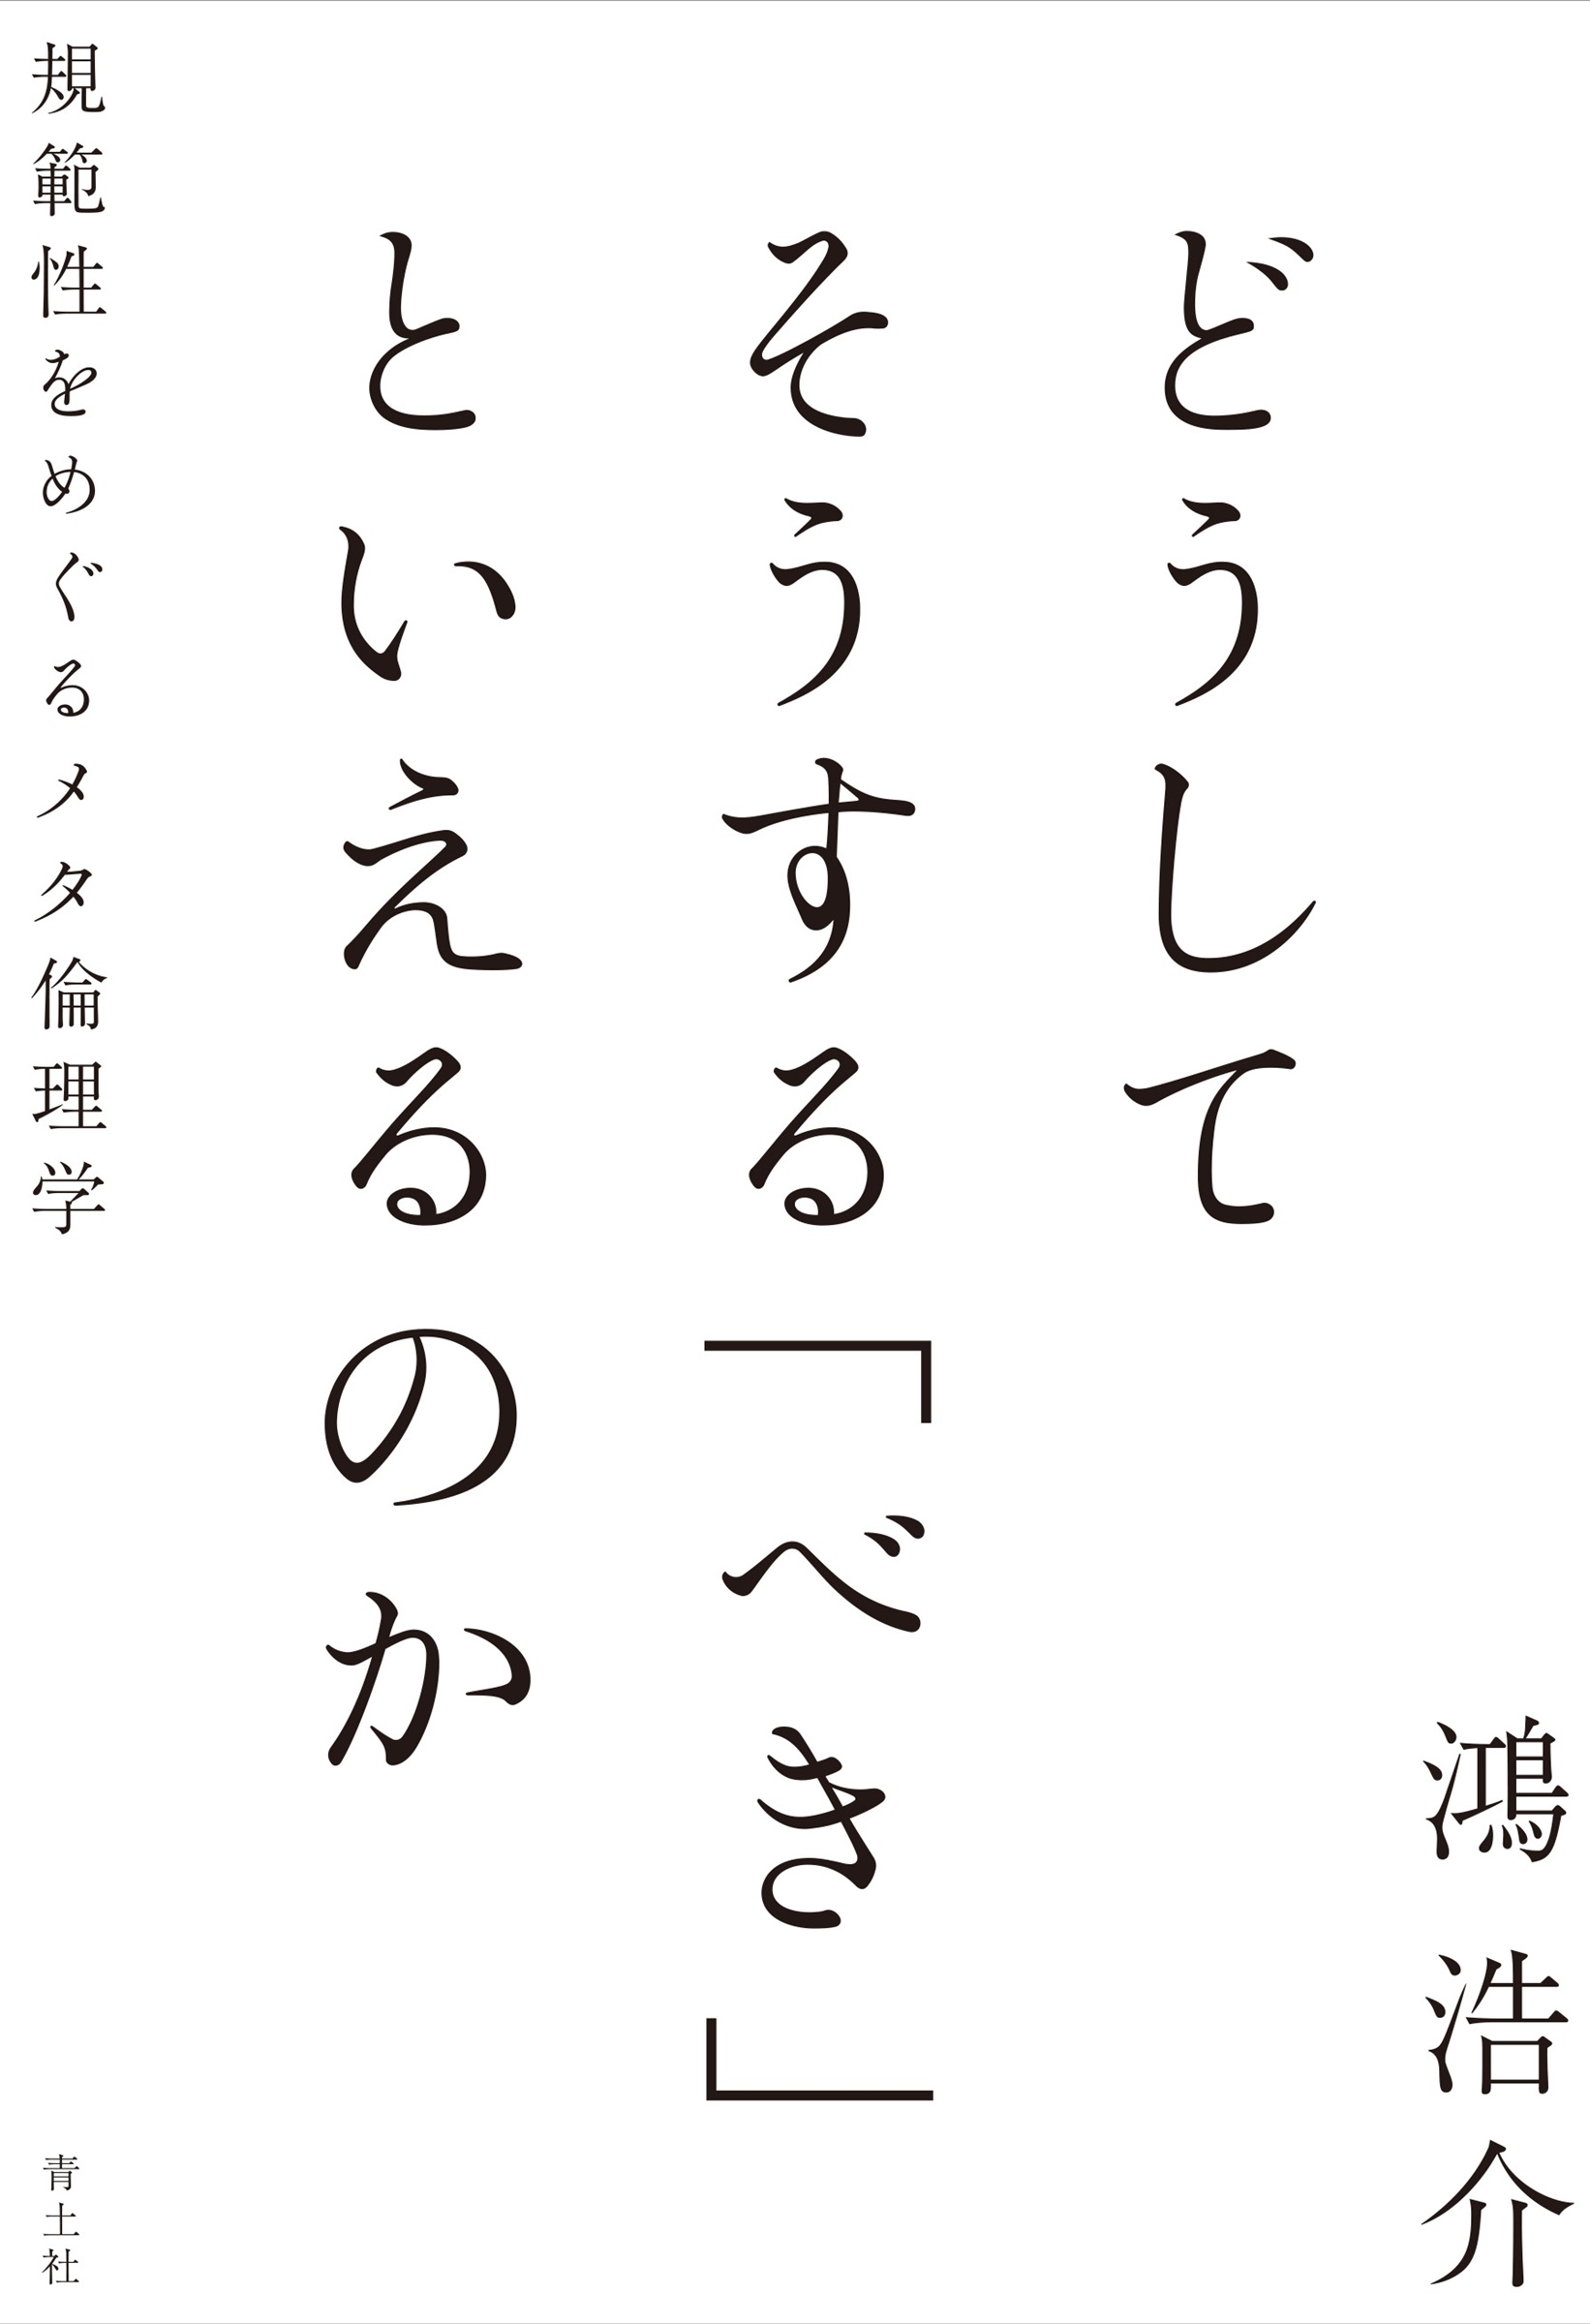 鴻浩介
どうして
そうする「べき」
といえるのか
規範性をめぐるメタ倫理学
青土社